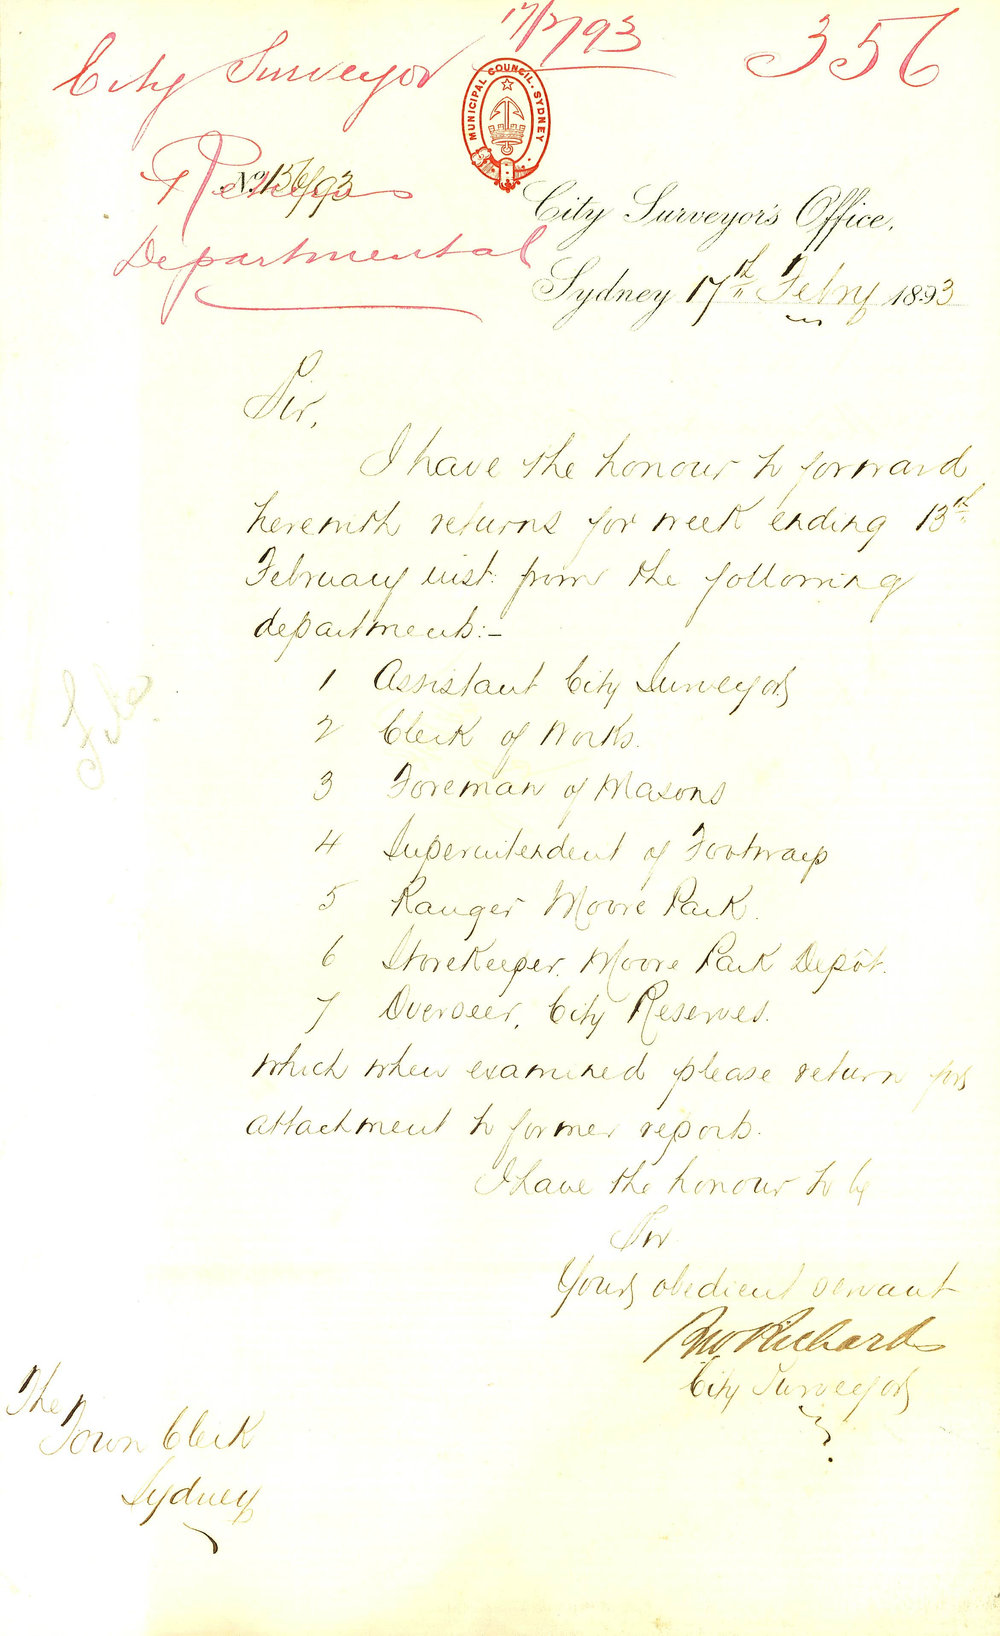 17/2/93
356
City Surveyor
MUNICIPAL COUNCIL. SYDNEY
Returns
No. 156/93
Departmental
City Surveyor's Office,
Sydney 17th Febry 1893
Sir,
I have the honour to forward
herewith returns for week ending 13th
February inst: from the following
departments:-
1 Assistant City Surveyor
2 Clerk of Works.
3 Foreman of Masons
4 Superintendent of Footways
5 Ranger Moore Park.
6 Storekeeper, Moore Park Depôt.
7 Overseer, City Reserves.
which when examined please return for
attachment to former reports.
I have the honour to be
Sir
Your obedient servant
Richards
City Surveyor
File
The
Town Clerk
Sydney